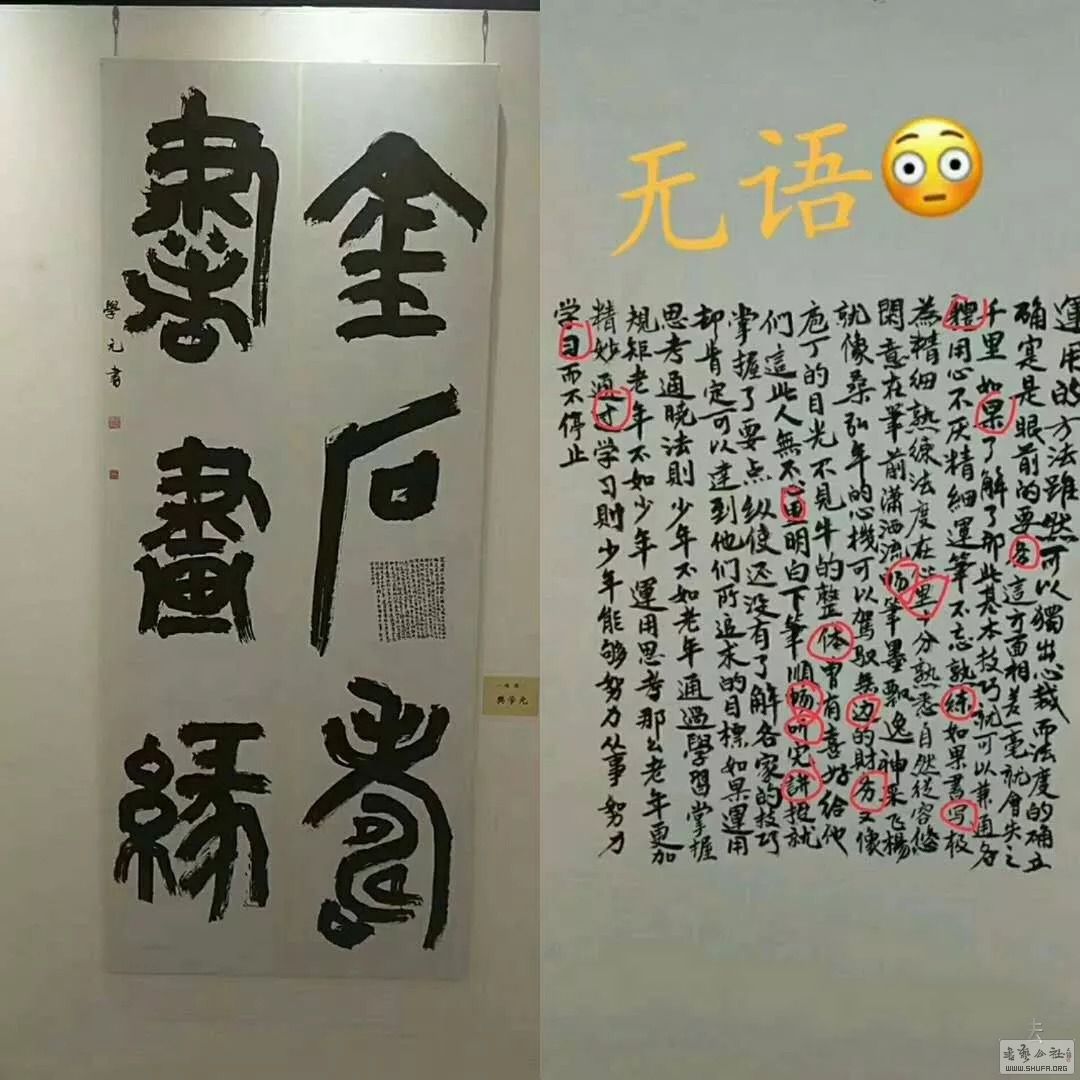 金石壽
書畫緣
學元書
樊学元
无语
運用的方法雖然可以獨出心裁而法度的确立
确寔是眼前的要务這方面相差一毫就會失之
千里如果了解了那些基本技巧就可以兼通各
種用心不厌精细運筆不忘熟练如果書写极
為精细熟練法度在心里十分熟悉自然從容悠
閑意在筆前潇洒流畅筆墨飄逸神采飞楊
就像桑弘年的心機可以駕馭無边的財务又像
庖丁的目光不見牛的整体曾有喜好给他
们這些人無不通明白下筆順畅听完讲授就
掌握了要点纵使还没有了解各家的技巧
却肯定可以達到他们所追求的目標如果運用
思考通晓法則少年不如老年通過學習掌握
規矩老年不如少年運用思考那么老年更加
精妙通过学习則少年能够努力从事努力
学习而不停止
WWW.SHUFA.ORG